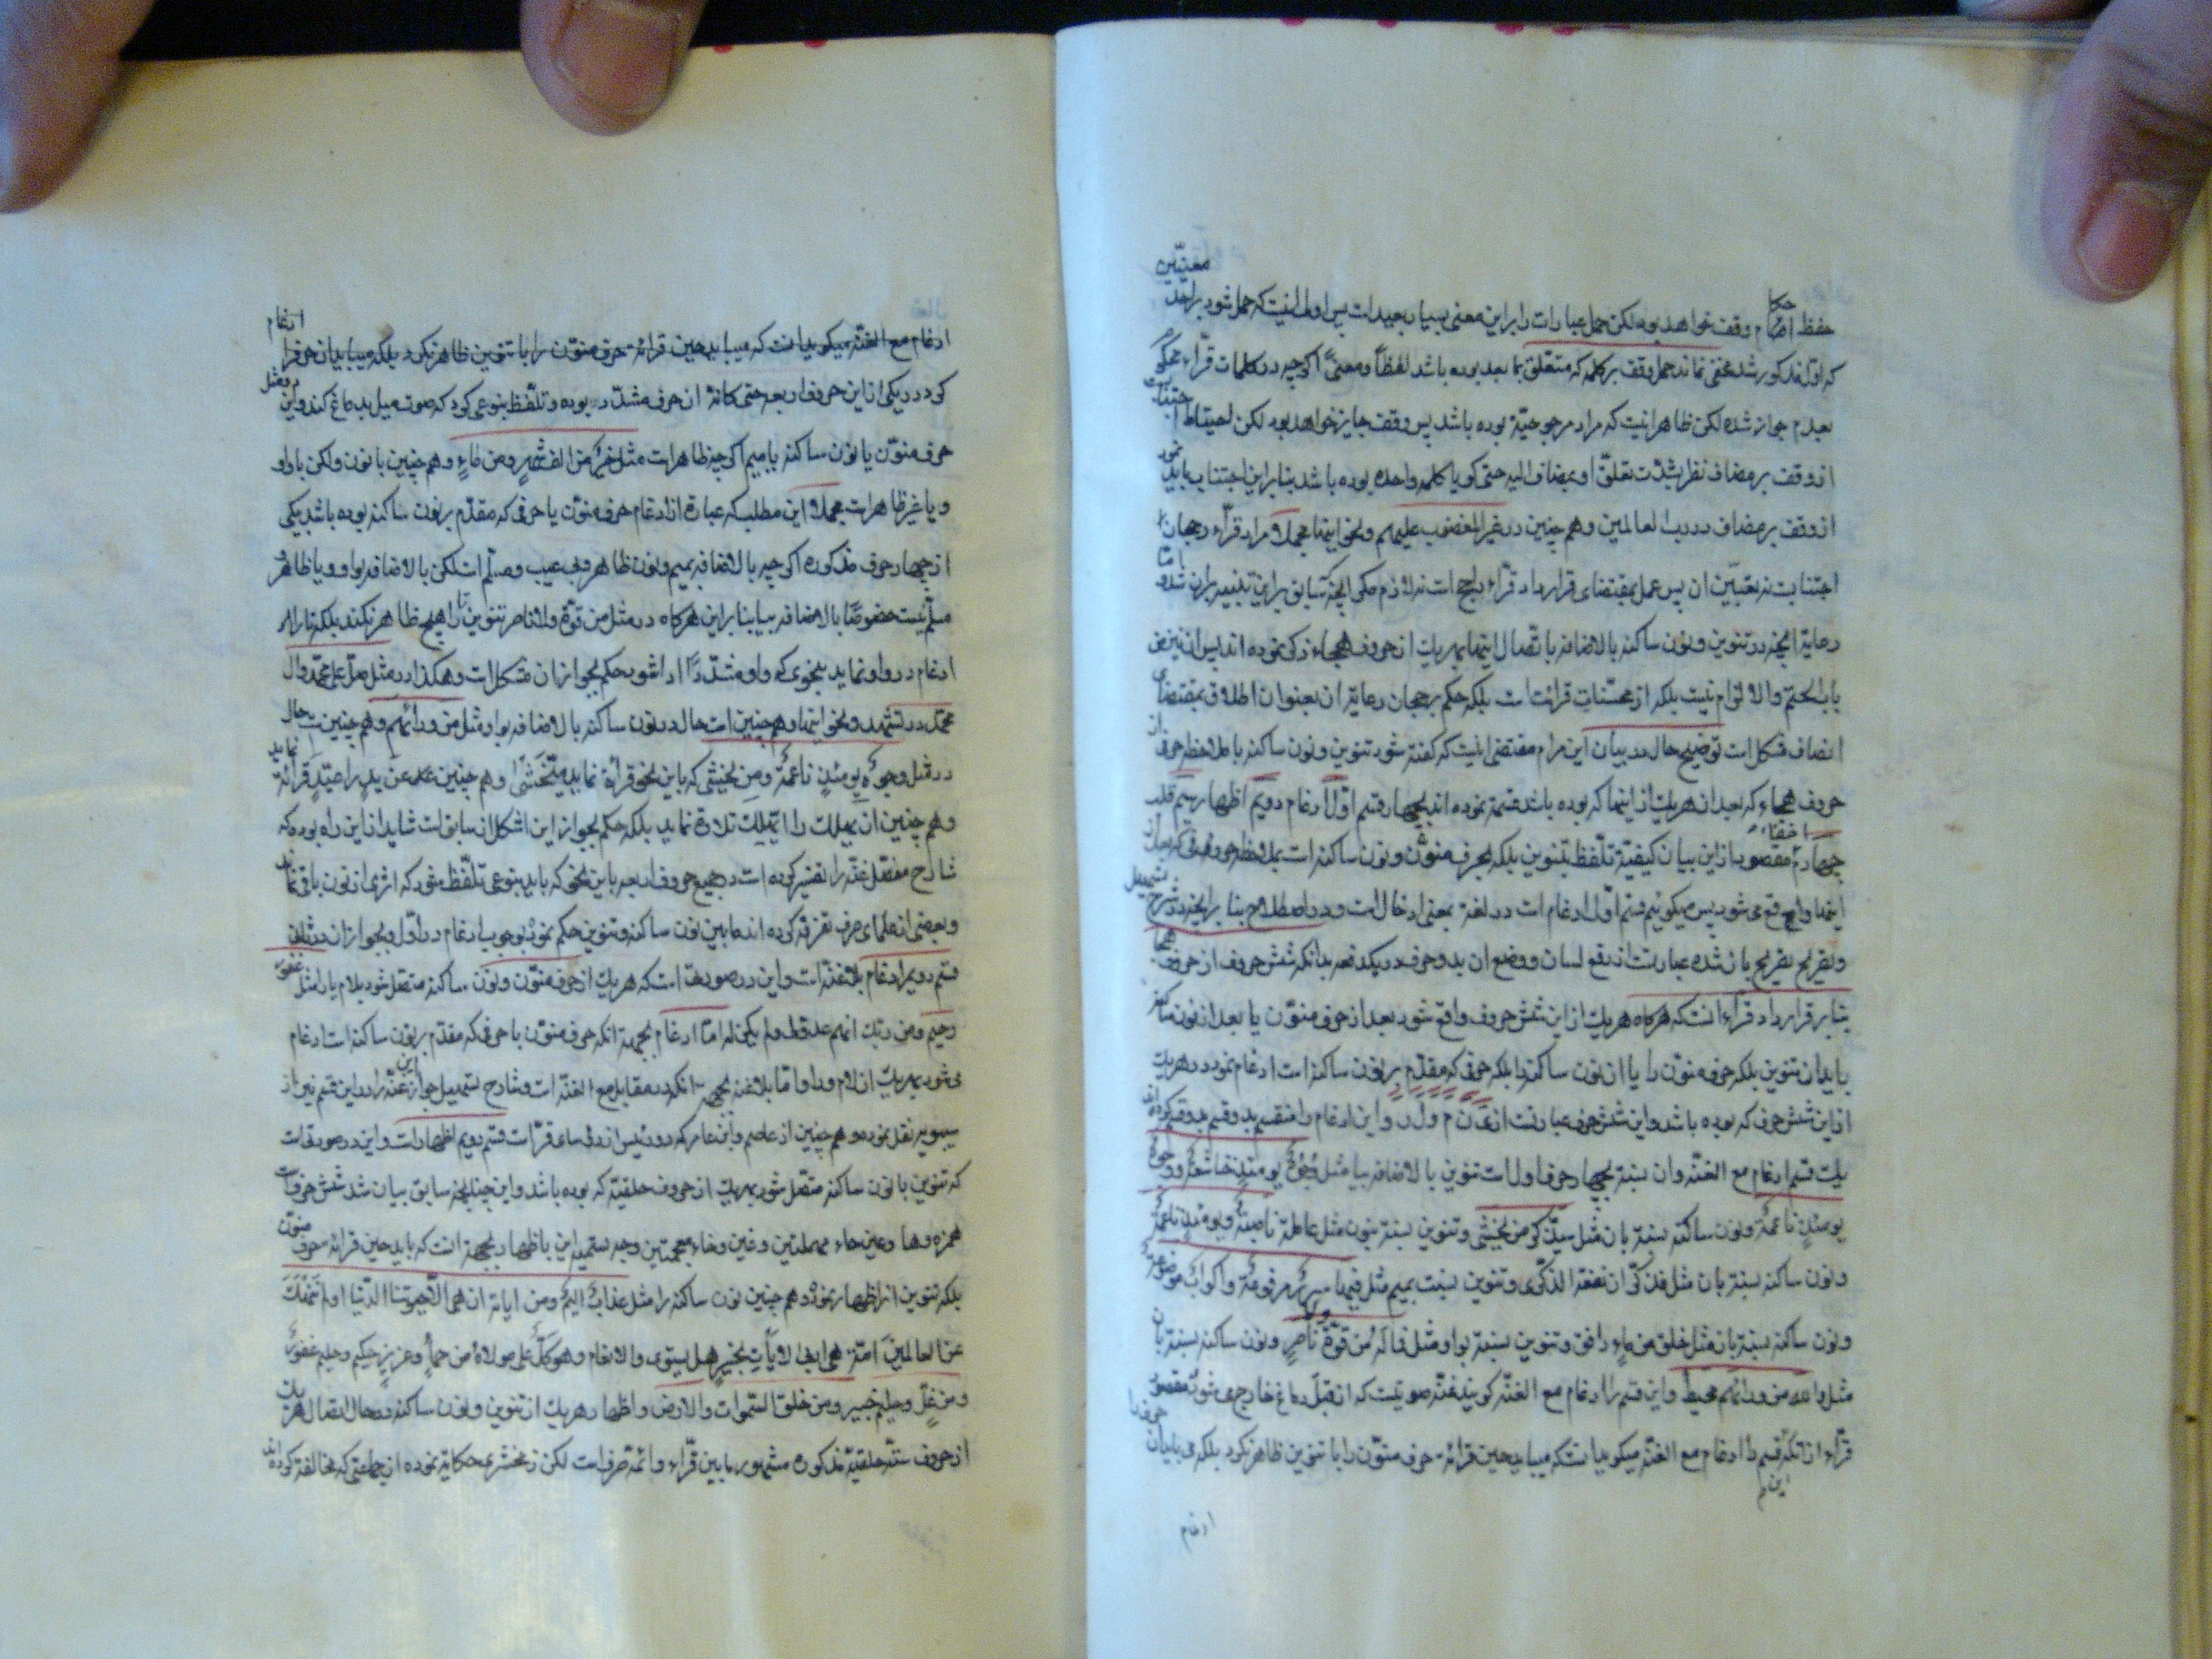 حفظ احکام وقف خواهد بود لکن حمل عبارات را براین معنی بسیار بعید است پس اولی انیست که حمل شود براحد معنیین
که اول مذکور شد مخفی نماند حمل وقف بر کلمه که متعلق بما بعد بوده باشد لفظاً ومعنیً اگرچه در کلمات قرّاء محکوم
بعدم جواز شده لکن ظاهر اینست که مراد مرجوحیّة بوده باشد پس وقف جایز خواهد بود لکن احتیاط اجتنابست
از وقف بر مضاف نظر بشدّت تعلّق او بمضاف الیه حتی کویا کلمه واحده بوده باشد بنابراین اجتناب باید نمود
از وقف بر مضاف در رب العالمین وهم چنین در غیر المغضوب علیهم ونحو اینها مجملا مراد قرّاء رجحان
اجتنابست نه تعیین آن پس عمل بمقتضای قرارداد قرّاء راجح است نه لازم
رعایة آنچه در تنوین ونون ساکنه بالاضافه باتّصال اینها بهریک از حروف هجاء ذکر نموده اند پس آن نیز من
باب الحتم والالزام نیست بلکه از محسّنات قرائت است بلکه حکم برجحان رعایة آن بعنوان اطلاق بمقتضای
انصاف مشکل است توضیح حال در بیان این مرام مقتضی انیست که گفته شود تنوین ونون ساکنه با ملاحظه حروف
حروف هجاء که بعد از هریک از اینها که بوده باشد قسمة نموده اند بچهار قسم اوّل ادغام دویم اظهار سیم قلب
چهارم اخفاء مقصود از این بیان کیفیّة تلفّظ بتنوین بلکه بحرف منوّن ونون ساکنه است بملاحظه حروفی که بعد از
اینها واقع می شود پس میکوئیم قسم اوّل ادغام است در لغة بمعنی ادخال است ودر اصطلاح بنا برآنچه در شرح تسهیل
وتصریح بان شده عبارتست از رفع لسان ووضع آن بدو حرف در یکدفعه بدانکه شش حروف از حروف هجا
بنابر قرارداد قرّاء آنست که هرکاه هریک از این شش حروف واقع شود بعد از حرف منوّن یا بعد از نون ساکنه
باید آن تنوین بلکه حرف منوّن را یا آن نون ساکنه را بلکه حرفی که مقدّم بر نون ساکنه است ادغام نمود در هریک
از این شش حرف که بوده باشد واین شش حرف عبارتست از ی ن م و ل ر واین ادغام را منقسم بدو قسم کرده اند
یک قسم ادغام مع الغنّه وآن نسبة بچهار حرف اول است تنوین بالاضافه بیا مثل وجوهٌ یومئذٍ خاشعة ووجوهٌ
یومئذٍ ناعمة ونون ساکنه نسبة بان مثل سیذّکر من یخشی وتنوین نسبة بنون مثل عاملة ناصبة ویومئذٍ ناعمة
ونون ساکنه نسبة بان مثل فذکّر ان نفعت الذکری وتنوین نسبت بمیم مثل فیها سررٌ مرفوعة واکوابٌ موضوعة
ونون ساکنه نسبة بان مثل خلق من ماء دافق وتنوین نسبة بواو مثل فما له من قوّة ولا ناصر ونون ساکنه نسبة بان
مثل والله من ورائهم محیط واین قسم را ادغام مع الغنّه کویند غنّه صوتیست که از قبل دماغ خارج می شود مقصود
قرّاء از آنکه این قسم را ادغام مع الغنّه میکویند آنست که میباید حین قرائة حرف منوّن را با تنوین ظاهر نکرد بلکه می باید آن حرف را
ادغام
ادغام مع الغنّه میکویند آنست که میباید حین قرائة حرف منوّن را با تنوین ظاهر نکرد بلکه میباید آن حرف را ادغام
کرد در یکی از این حروف اربعه حتی کانّه آن حرف مشدّد بوده وتلفّظ بنوعی کرد که صوت میل بدماغ کند واین در مثل
حرف منوّن یا نون ساکنه با میم اکرچه ظاهر است مثل خیرٌ من الف شهر ومن ماءٍ وهم چنین با نون ولکن با واو
ویا غیر ظاهر است مجملا این مطلب که عبارة از ادغام حرف منوّن یا حرفی که مقدّم بر نون ساکنه بوده باشد بیکی
از چهار حرف مذکوره اکرچه بالاضافه بمیم ونون ظاهر وبی عیب ومسلّم است لکن بالاضافه بواو ویا ظاهر و
مسلّم نیست خصوصًا بالاضافه بیا بنابراین هرکاه در مثل من قوّة ولا ناصر تنوین را هیچ ظاهر نکند بلکه تا را
ادغام در واو نماید بنحوی که واو مشدّدًا ادا شود حکم بجواز آن مشکل است وهمکذا در مثل صلّ علی محمّد وال
محمّد در تشهد ونحو اینها وهم چنین است حال در نون ساکنه بالاضافه بواو مثل من ورائهم وهم چنین است حال
در مثل وجوهٌ یومئذٍ ناعمة ومن یخشی که باین نحو قرائة نماید میّخشی وهم چنین عن یدٍ را عیّدٍ قرائة نماید
وهم چنین ان یهلک را ایّهلک تلاوة نماید بلکه حکم بجواز این اشکل از سابق است شاید از این راه بوده که
شارح مفصّل غنّه را تفسیر کرده است در جمیع حروف اربعه باین نحو که باید بنوعی تلفّظ شود که اثری از نون باقی ماند
وبعضی از علمای صرف تفرقه کرده اند مابین نون ساکنه وتنوین حکم نموده بوجوب ادغام در اوّل وبجواز آن در ثانی
قسم دویم ادغام بلاغنّه است واین در صورتی است که هریک از حرف منوّن ونون ساکنه متصل شود بلام یا را مثل غفورٌ
رحیم ومن ربّک انهم عدوّ لی ولم یکن له امّا ادغام بجهة آنکه حرف منوّن یا حرفیکه مقدّم بر نون ساکنه است ادغام
می شود بهریک از لام ورا وامّا بلاغنّه بجهة آنکه در مقابل مع الغنّه است وشارح تسهیل جواز غنّه را در این قسم نیز از
سیبویه نقل نموده وهم چنین از عاصم وابن عامر که دو رئیس از رؤسای قرّاءست قسم دویم اظهار است واین در صورتی است
که تنوین یا نون ساکنه متّصل شود بهریک از حروف حلقیّه که بوده باشد واین چنانچه سابق بیان شد شش حرف است
همزه وها وعین حاء مهملتین وغین وخاء معجمتین وجه تسمیه این باظهار بجهة آنست که باید حین قرائة حرف منوّن
بلکه تنوین را اظهار نمود وهم چنین نون ساکنه را مثل عذابٌ الیم ومن ایاته ان هی الّا حیوتنا الدّنیا اولم ننهک
عن العالمین وهو کَلٌّ علی مولاه من حمأ وعزیزٌ حکیم وحلیم غفور
ومن غلّ وعلیمٌ خبیر ومن خلق السّموات والارض واظهار هریک از تنوین ونون ساکنه در حال اتصال بهریک
از حروف ستّه حلقیّه مذکوره مشهور مابین قرّاء وائمّه صرف است لکن زمخشری حکایة نموده از جماعتی که مخالفة کرده اند